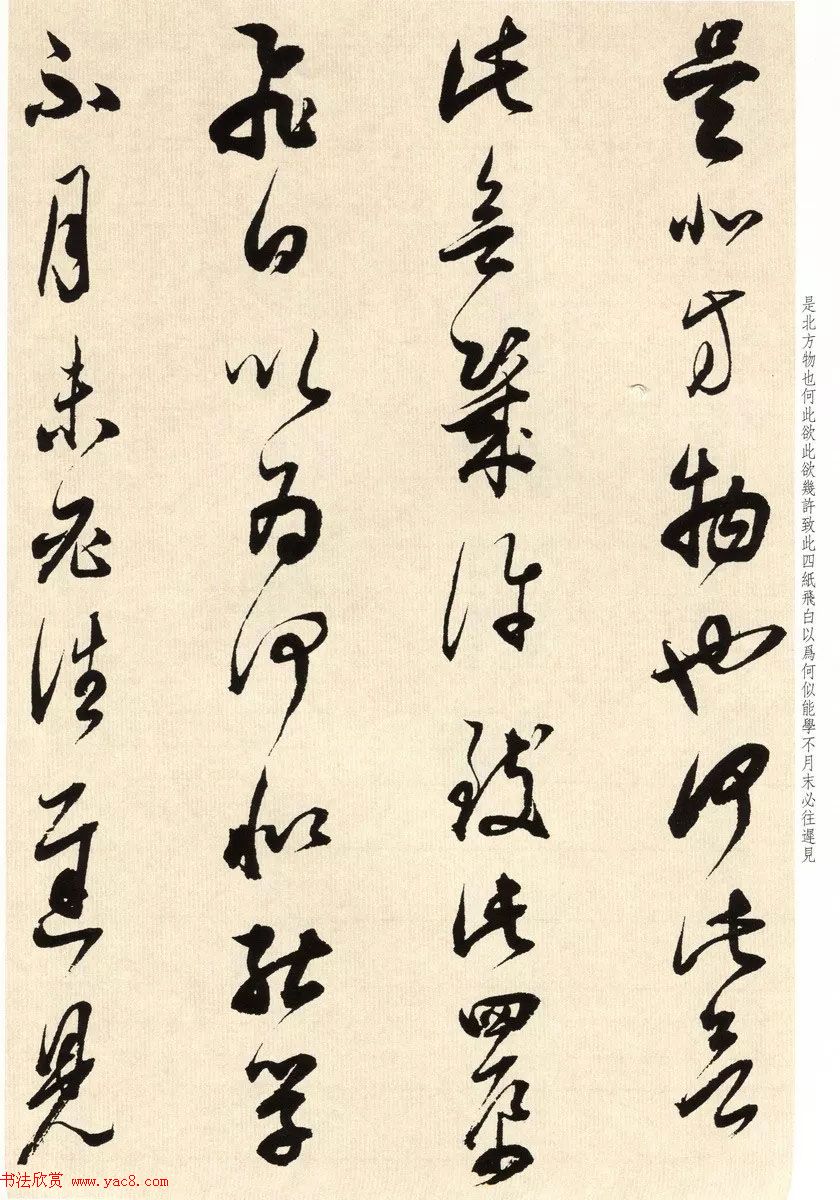 是北方物也何此欲此欲幾許致此四紙飛白以爲何似能學不月末必往遲見
是北方物也何此欲
此欲幾許致此四紙
飛白以爲何似能學
不月末必往遲見
书法欣赏 www.yac8.com